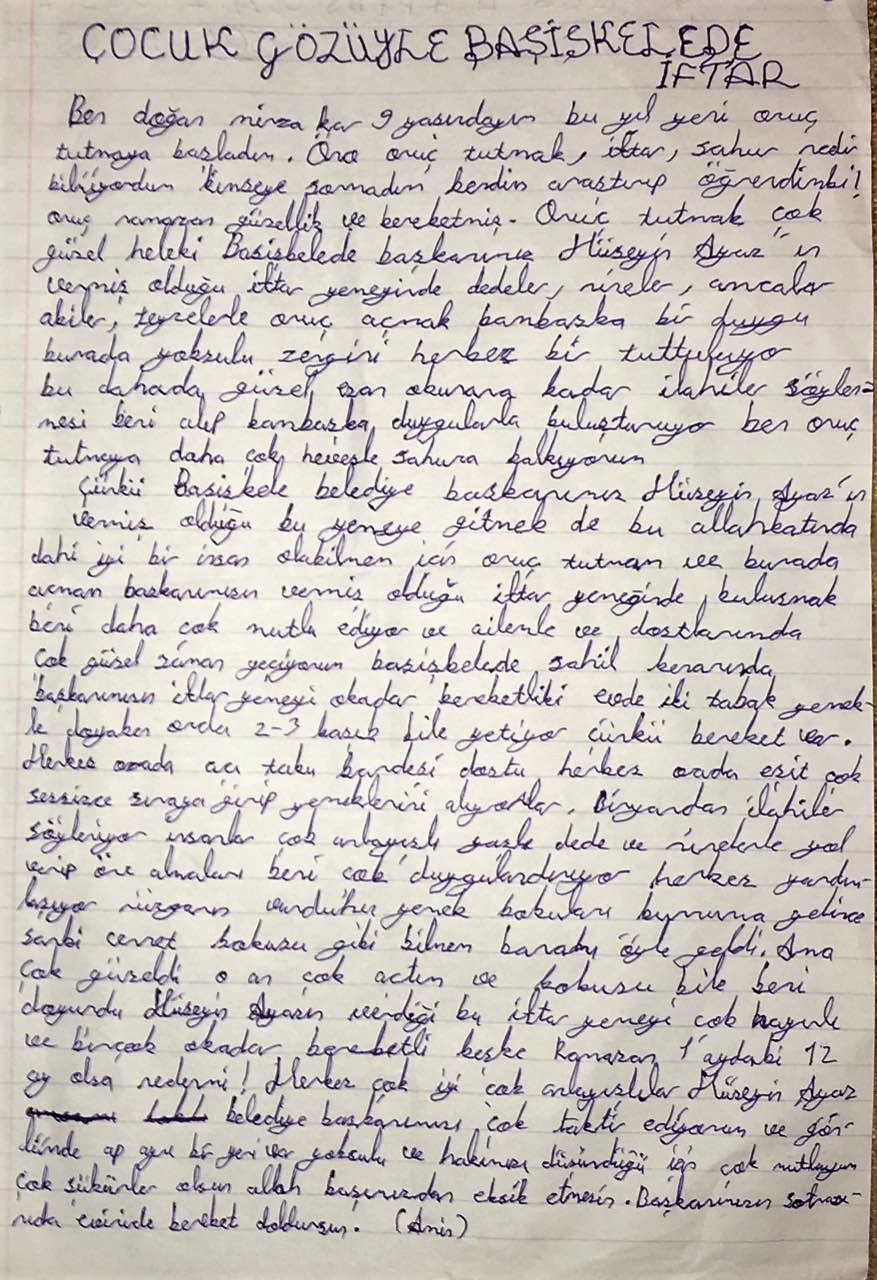 ÇOCUK GÖZÜYLE BAŞİSKELEDE
İFTAR
Ben doğan mirza kar 9 yaşındayım bu yıl yeni oruç
tutmaya başladım. Önce oruç tutmak, iftar, sahur nedir
bilmiyordum kimseye sormadım kendim araştırıp öğrendimki!
oruç ramazan güzellik ve bereketmiş. Oruç tutmak çok
güzel heleki Basiskelede başkanımız Hüseyin Ayaz'ın
vermiş olduğu iftar yemeyinde dedeler, nineler, amcalar
abiler, teyzelerle oruç açmak bambaska bir duygu
burada yoksulu zengini herkez bir tutuluyor
bu dahada güzel ezan okunana kadar ilahiler söylen=
mesi beni alıp bambaska duygularla buluşturuyor ben oruç
tutmaya daha çok hevesle sahura kalkıyorum
Çünkü Basiskele belediye baskanımız Hüseyin Ayaz'ın
vermiş olduğu bu yemeye gitmek de bu allahkatında
dahi iyi bir insan olabilmem için oruç tutmam ve burada
açmam baskanımısın vermiş olduğu iftar yemeğinde bulusmak
beni daha çok mutlu ediyor ve ailemle ve dostlarımda
çok güsel zaman geçiyorum basiskelede sahil kenarında
başkanımısın iftar yemeyi okadar bereketliki evde iki tabak yemek-
le doyarken orda 2-3 kasık bile yetiyor çünkü bereket var.
Herkes orada acı tatlı kardesi dostu herkez orada esit çok
sessizce sıraya girip yemeklerini alıyorlar. Biryandan ilahiler
söyleniyor insanlar çok anlayıslı yaslı dede ve ninelerle yol
verip öne almaları beni çok duygulandırıyor herkez yardım-
laşıyor rüzgarın yemek kokuları burnuma gelince
sanki cennet kokusu gibi bilmem banamı öyle geldi. Ama
çok güzeldi o an çok actım ve kokusu bile beni
doyurdu Hüseyin Ayazın verdiği bu iftar yemeyi çok hayırlı
ve birçok okadar bereketli keske Ramazan 1 aydanki 12
ay olsa nedermi! Herkes çok iyi çok anlayıslılar Hüseyin Ayaz
belediye başkanımızı çok taktir ediyorum ve gön-
lümde ap ayrı bir yeri var yoksulu ve hakımızı düsündüğü için çok mutluyum
Çok sükürler olsun allah başımızdan eksik etmesin. Başkanımızın sofrası-
nıda evinide bereket doldursun. (Amin)